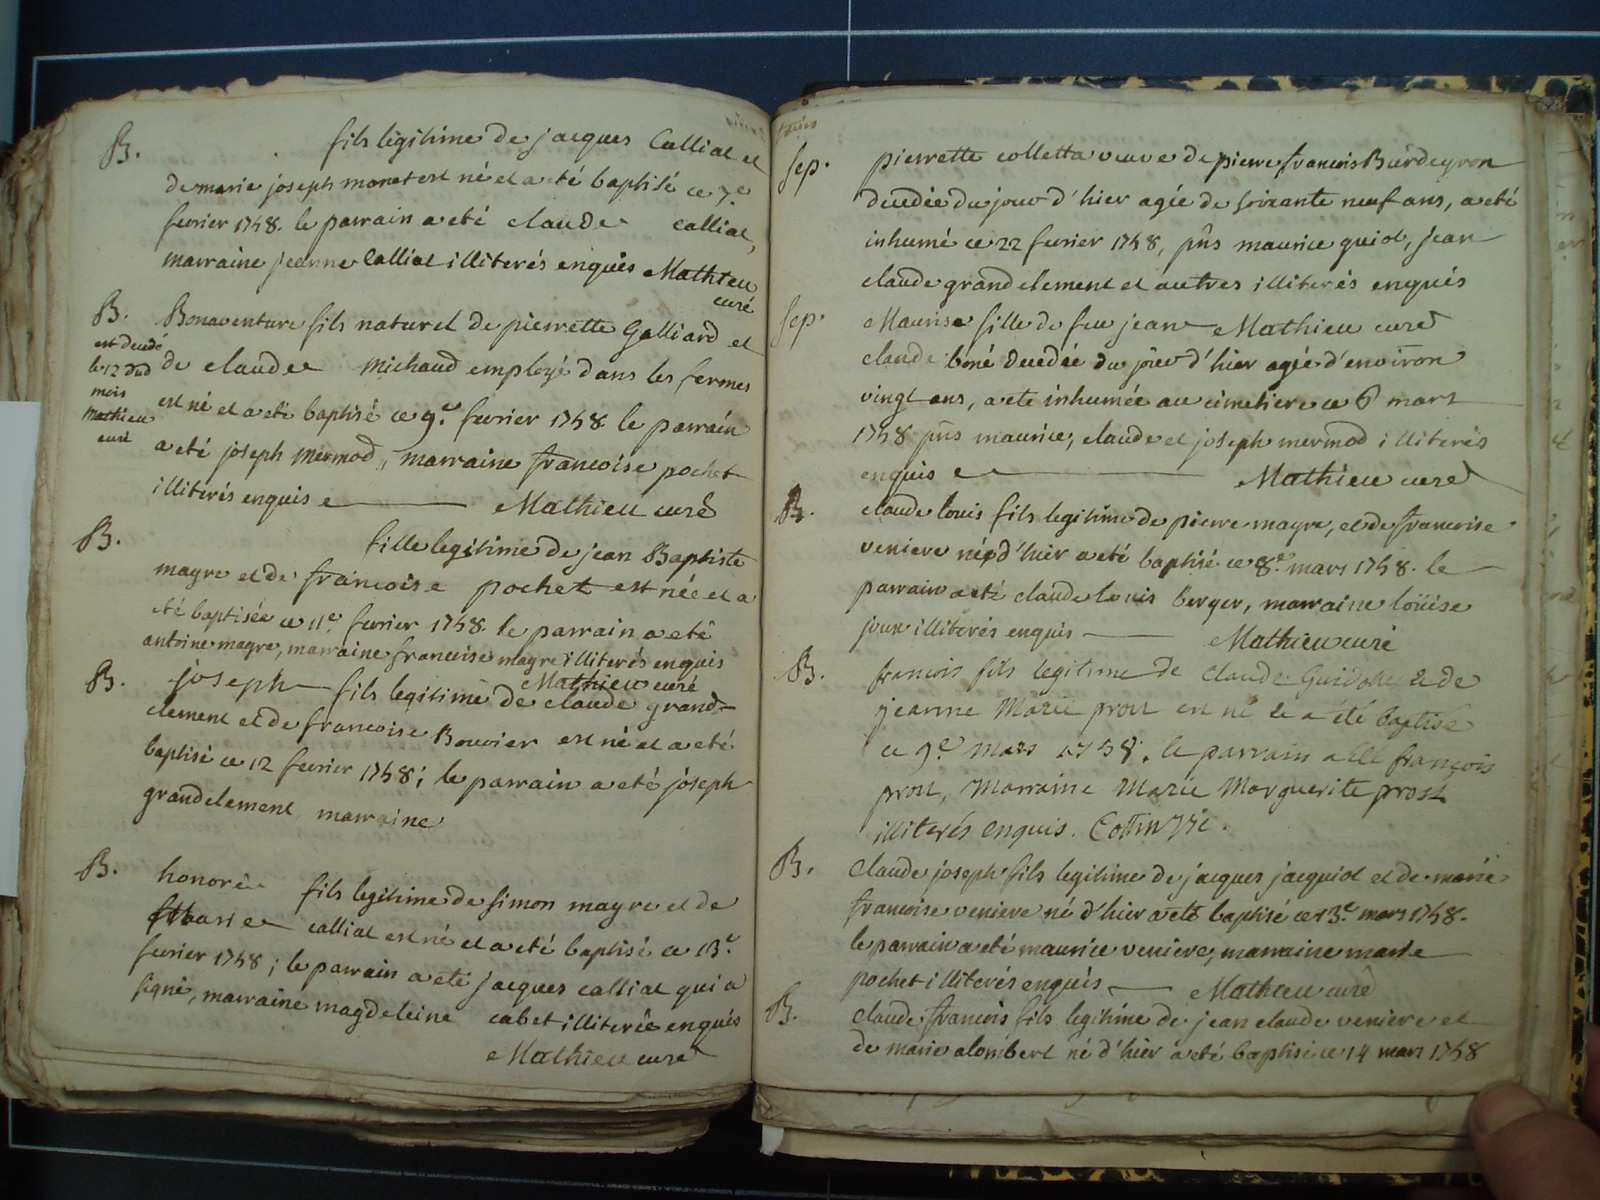 B. fils legitime de jacques Calliat et
de marie joseph monet est né et a eté baptisé ce 7.e
fevrier 1758. le parrain a eté claude calliat,
marraine jeanne Calliat illiterés enquis Mathieu
curé
B. Bonaventure fils naturel de pierrette Galliard et
est decedé
le 12 dud
mois
Mathieu
curé
de claude michaud employé dans les fermes
est né et a eté baptisé ce 9.e fevrier 1758 le parrain
a eté joseph mermod, marraine francoise pochet
illiterés enquis Mathieu curé
B. fille legitime de jean Baptiste
mayre et de francoise pochet est née et a
eté baptisée ce 11.e fevrier 1758. le parrain a eté
antoine mayre, marraine francoise mayre illiterés enquis
Mathieu curé
B. joseph fils legitime de claude grand-
clement et de francoise Bouvier est né et a eté
baptisé ce 12 fevrier 1758; le parrain a eté joseph
grandclement marraine
B. honoré fils legitime de simon mayre et de
marie calliat est né et a eté baptisé ce 13.e
fevrier 1758; le parrain a eté jacques calliat qui a
signé, marraine magdeleine cabet illiterée enquis
Mathieu curé
sep. pierrette colletta veuve de pierre francois
decedée du jour d'hier agée de soixante neuf ans, a eté
inhumé ce 22 fevrier 1758, pñs maurice guiot, jean
claude grandclement et autres illiterés enquis
Mathieu curé
sep. Maurise fille de feu jean
claude boné decedée du jour d'hier agée d'environ
vingt ans, a ete inhumée au cimetiere ce 6 mars
1758 pñs maurice, claude et joseph mermod illiterés
enquis Mathieu curé
B. claude louis fils legitime de pierre mayre, et de francoise
veniere né d'hier a eté baptisé ce 8.e mars 1758. le
parrain a eté claude louis berger, marraine loüise
joux illiterés enquis Mathieu curé
B. francois fils legitime de claude et de
jeanne Marie prost est né et a été baptisé
ce 9.e mars 1758. le parrain a été françois
prost, Marraine Marie Marguerite prost
illiterés enquis.
B. claude joseph fils legitime de jacques jacquiot et de marie
francoise veniere né d'hier a eté baptisé ce 13.e mars 1758.
le parrain a eté maurice veniere, marraine marie
pochet illiterés enquis Mathieu curé
B. claude francois fils legitime de jean claude veniere et
de marie alombert né d'hier a eté baptisé ce 14 mars 1758